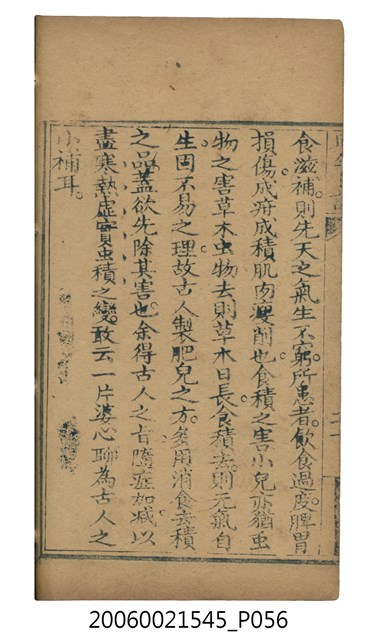 食滋補。則先天之氣生不窮。所患者。飲食過度脾胃
損傷。成疳成積肌肉瘦削也。食積之害小兒亦猶虫
物之害草木虫物去則草木日長。食積去則元氣自
生。固不易之理故古人製肥兒之方。多用消食去積
之品。蓋欲先除其害也。余得古人之旨隨症加減以
盡寒熱虛實虫積之變。敢云一片婆心聊為古人之
小補耳。
20060021545_P056